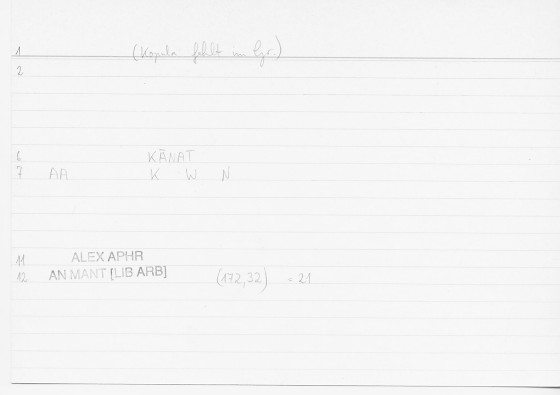 1 (Kopula fehlt im Gr.)
2
6 KĀNAT
7 AA K W N
11 ALEX APHR
12 AN MANT [LIB ARB] (172,32) - 21